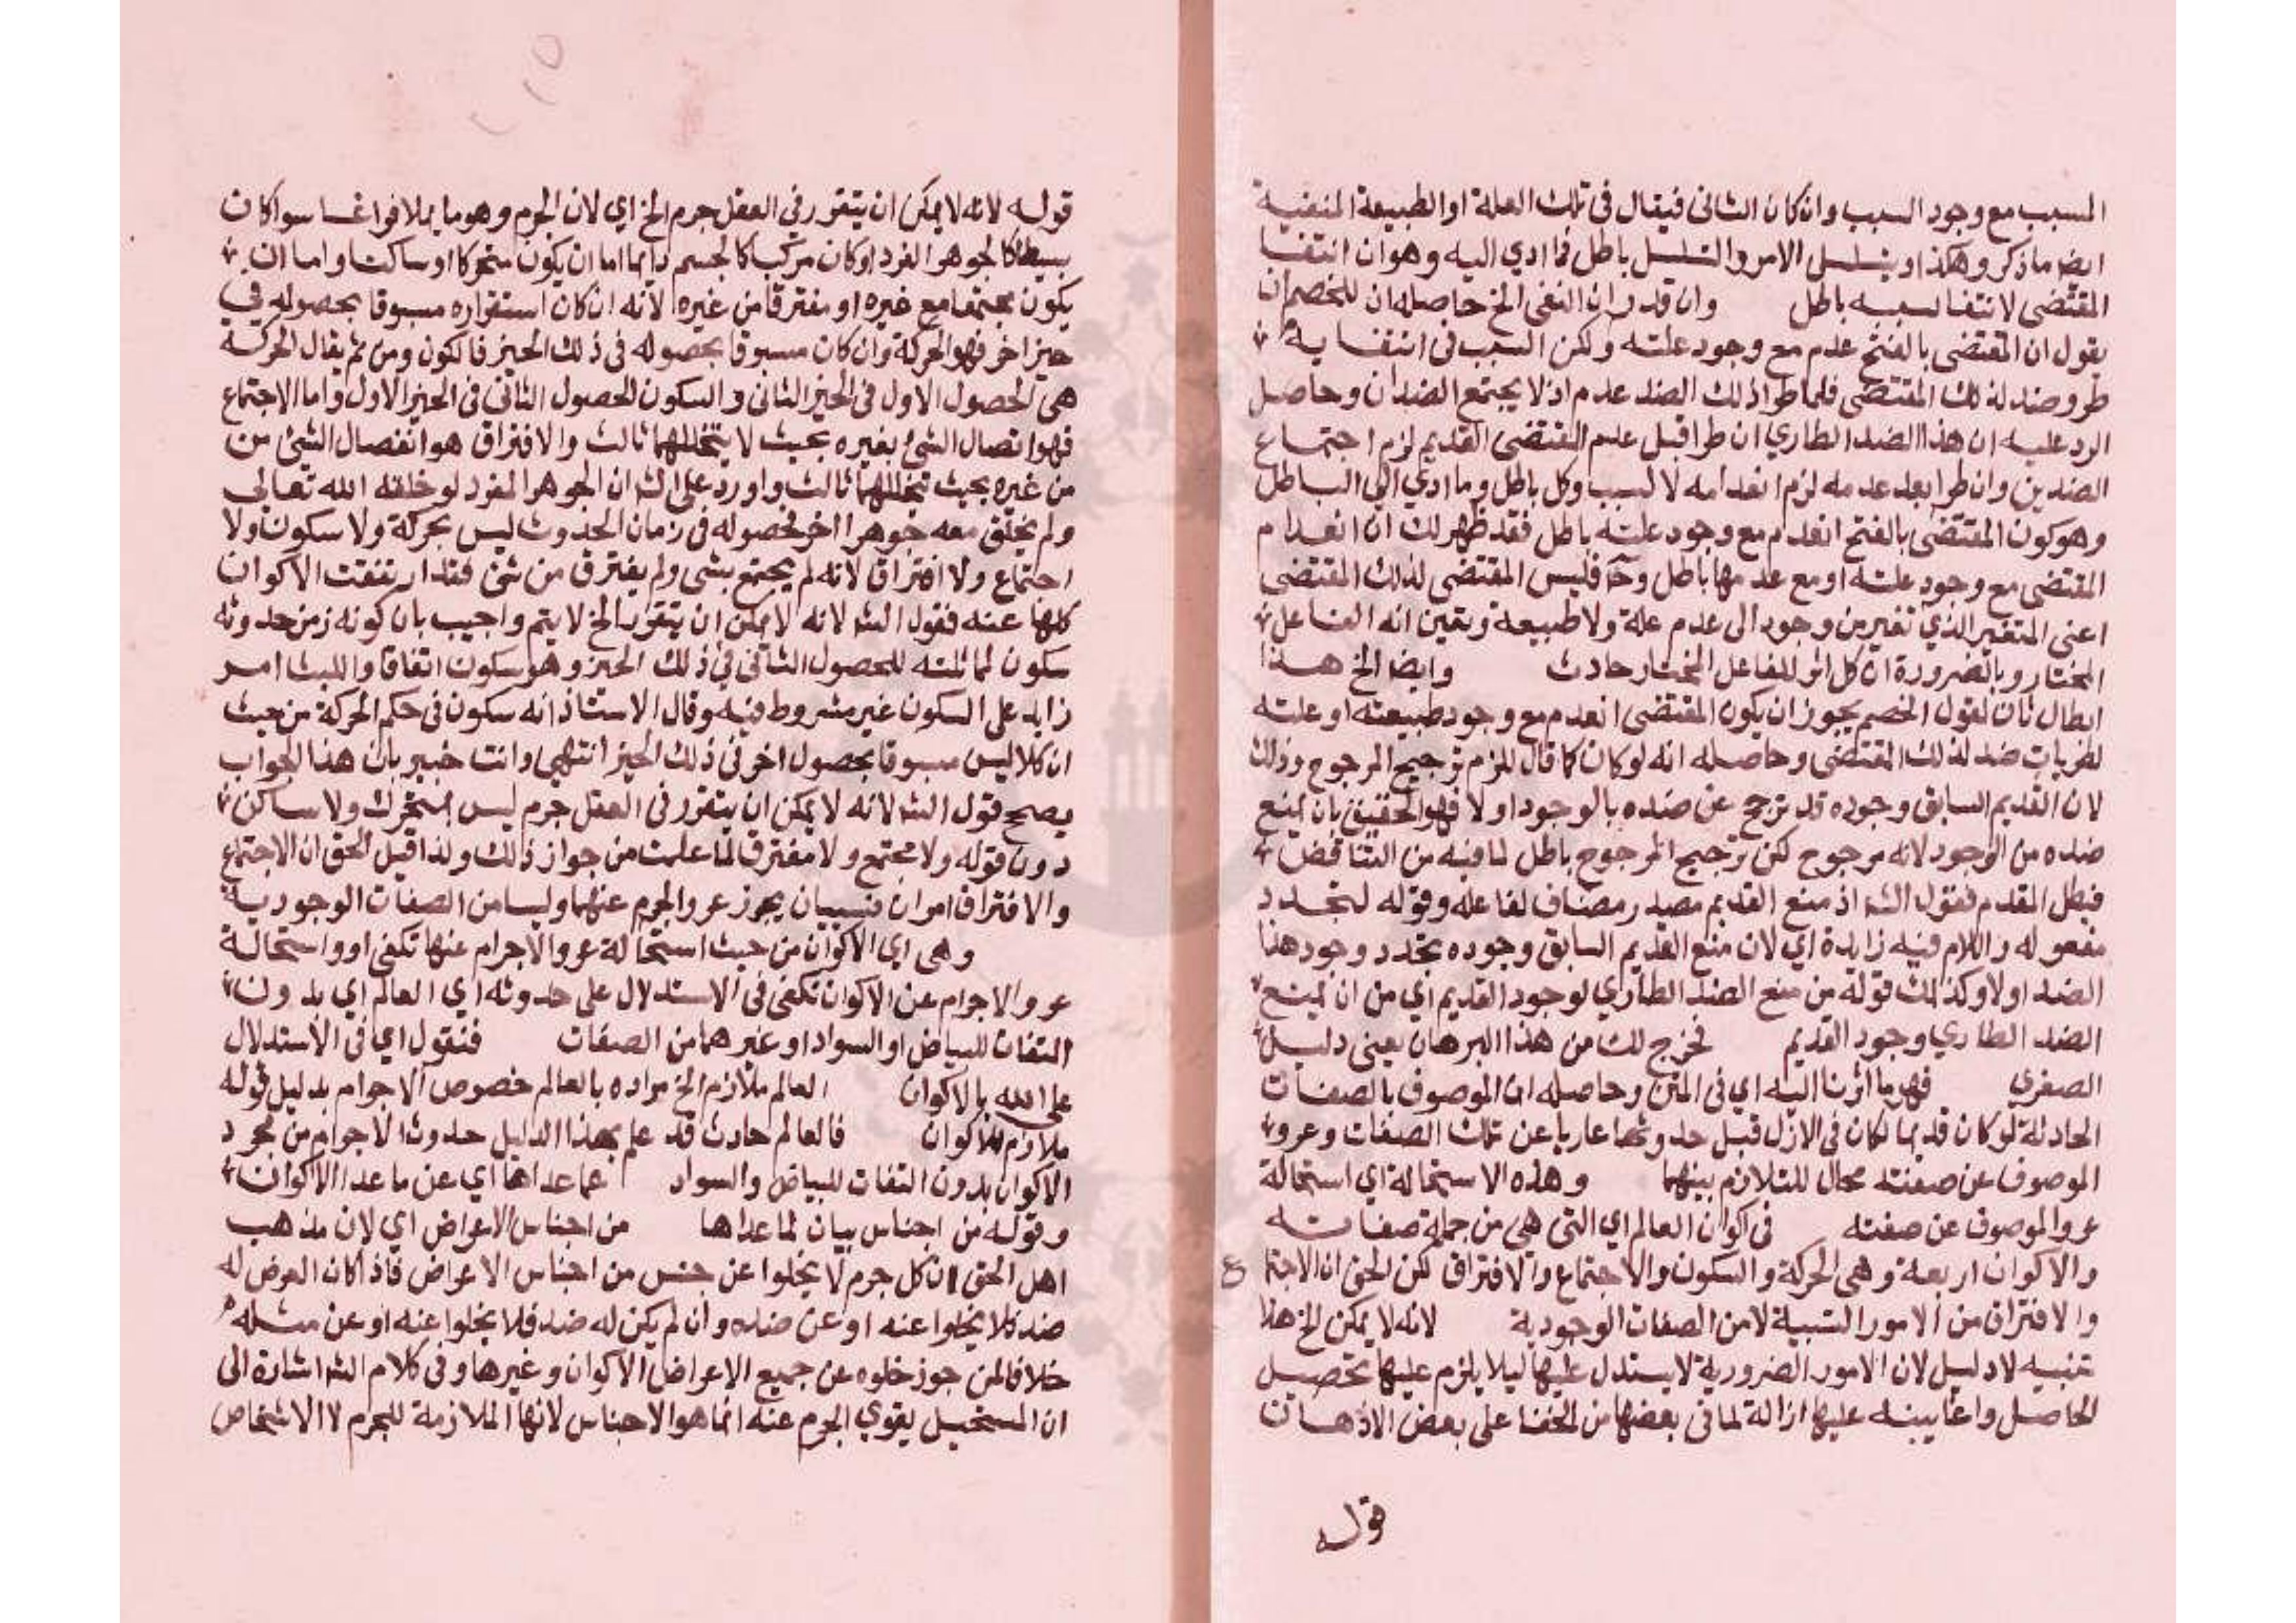 المسبب مع وجود السبب وان كان الثانى فيقال فى تلك العلة او الطبيعة المنفية
ايضا ما ذكر وهكذا ويتسلسل الامر والتسلسل باطل فما ادي اليه وهو ان انتفا
المقتضى لانتفا سببه باطل وان قدر ان النفى الخ حاصله ان للخصم ان
يقول ان المقتضى بالفتح عدم مع وجود علته ولكن السبب فى انتفايه
طرو ضد لذلك المقتضى فلما طرا ذلك الضد عدم اذ لا يجتمع الضدان وحاصل
الرد عليه ان هذا الضد الطاري ان طرا قبل عدم المقتضى القديم لزم اجتماع
الضدين وان طرا بعد عدمه لزم انعدامه لا لسبب وكل باطل وما ادي الي الباطل
وهو كون المقتضى بالفتح انعدم مع وجود علته باطل فقد ظهر لك ان انعدام
المقتضى مع وجود علته او مع عدمها باطل وح فليس المقتضى لذلك المقتضى
اعنى المتغير الذي تغير من وجود الى عدم علة ولا طبيعة وتعين انه الفاعل
المختار وبالضرورة ان كل اثر للفاعل المختار حادث وايضا الخ هذا
ابطال ثان لقول الخصم يجوز ان يكون المقتضى انعدم مع وجود طبيعته او علته
لطريان ضد لذلك المقتضى وحاصله انه لو كان كما قال للزم ترجيح المرجوح وذلك
لان القديم السابق وجوده قد ترجح عن ضده بالوجود اولا فهو الحقيق بان يمنع
ضده من الوجود لانه مرجوح لكن ترجيح المرجوح باطل لما فيه من التناقض
فبطل المقدم فقول الش اذ منع القديم مصدر مضاف لفاعله وقوله لتجدد
مفعوله واللام فيه زايدة اي لان منع القديم السابق وجوده تجدد وجود هذا
الضد اولا وكذلك قوله من منع الضد الطاري لوجود القديم اي من ان يمنع
الضد الطاري وجود القديم فخرج لك من هذا البرهان يعنى دليل
الصغري فهو ما اثرنا اليه اي فى المتن وحاصله ان الموصوف بالصفات
الحادثة لو كان قديما لكان فى الازل قبل حدوثها عاريا عن تلك الصفات وعرو
الموصوف عن صفته محال للتلازم بينهما وهذه الاستحالة اي استحالة
عرو الموصوف عن صفته فى اكوان العالم اي التى هي من جملة صفاته
والاكوان اربعة وهى الحركة والسكون والاجتماع والافتراق لكن الحق ان الاجتماع
والافتراق من الامور النسبية لا من الصفات الوجودية لانه لا يمكن الخ هذا
تنبيه لا دليل لان الامور الضرورية لا يستدل عليها ليلا يلزم عليها تحصيل
الحاصل وانما ينبه عليها ازالة لما فى بعضها من الخفا على بعض الاذهان
قوله
قوله لانه لا يمكن ان يتقرر فى العقل جرم الخ اي لان الجرم وهو ما يملا فراغا سوا كان
بسيطا كالجوهر الفرد او كان مركبا كالجسم دايما اما ان يكون متحركا او ساكنا واما ان
يكون مجتمعا مع غيره او مفترقا من غيره لانه ان كان استقراره مسبوقا بحصوله في
حيز اخر فهو الحركة وان كان مسبوقا بحصوله فى ذلك الحيز فالكون ومن ثم يقال الحركة
هى الحصول الاول فى الحيز الثانى والسكون الحصول الثانى فى الحيز الاول واما الاجتماع
فهو اتصال الشئ بغيره بحيث لا يتخللهما ثالث والافتراق هو انفصال الشئ من
من غيره بحيث يتخللهما ثالث واورد على الش ان الجوهر المفرد لو خلقه الله تعالي
ولم يخلق معه جوهرا اخر فحصوله فى زمان الحدوث ليس بحركة ولا سكون ولا
اجتماع ولا افتراق لانه لم يجتمع بشى ولم يفترق من شئ فقد ارتفعت الاكوان
كلها عنه فقول الش لانه لا يمكن ان يتقرر الخ لا يتم واجيب بان كونه زمن حدوثه
سكون لمماثلته للحصول الثانى في ذلك الحيز وهو سكون اتفاقا واللبث امر
زايد على السكون غير مشروط فيه وقال الاستاذ انه سكون فى حكم الحركة من حيث
ان كلا ليس مسبوقا بحصول اخر فى ذلك الحيز انتهي وانت خبير بان هذا الجواب
يصحح قول الش لانه لا يمكن ان يتقرر فى العقل جرم ليس بمتحرك ولا ساكن
دون قوله ولا مجتمع ولا مفترق لما علمت من جواز ذلك ولذا قيل الحق ان الاجتماع
والافتراق امران نسبيان يجوز عرو الجرم عنهما وليسا من الصفات الوجودية
وهى اي الاكوان من حيث استحالة عرو الاجرام عنها تكفى او واستحالة
عرو الاجرام عن الاكوان تكفى فى الاستدلال على حدوثه اي العالم اي بدون
التفات للبياض او السواد او غيرهما من الصفات فنقول اي فى الاستدلال
على الله بالاكوان العالم ملازم الخ مراده بالعالم خصوص الاجرام بدليل قوله
ملازم للاكوان فالعالم حادث قد علم بهذا الدليل حدوث الاجرام من مجرد
الاكوان بدون التفات للبياض والسواد عما عداها اي عن ما عدا الاكوان
وقوله من اجناس بيان لما عداها من اجناس الاعراض اي لان مذهب
اهل الحق ان كل جرم لا يخلوا عن جنس من اجناس الاعراض فاذا كان العرض له
ضد فلا يخلوا عنه او عن ضده وان لم يكن له ضد فلا يخلوا عنه او عن مثله
خلافا لمن جوز خلوه عن جميع الاعراض الاكوان وغيرها وفى كلام الش اشارة الى
ان المستحيل يقوي الجرم عنه انما هو الاجناس لانها الملازمة للجرم لا الاشخاص